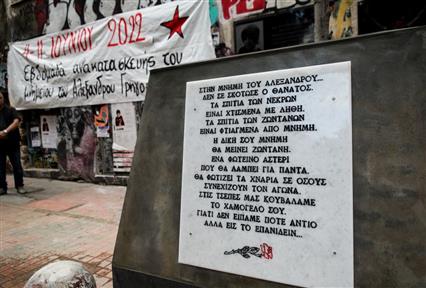 11 ΙΟΥΝΙΟΥ 2022
Εβδομάδα ανακατασκευής του
μνημείου του Αλέξανδρου Γρηγο
ΣΤΗΝ ΜΝΗΜΗ ΤΟΥ ΑΛΕΞΑΝΔΡΟΥ...
ΔΕΝ ΣΕ ΣΚΟΤΩΣΕ Ο ΘΑΝΑΤΟΣ.
ΤΑ ΣΠΙΤΙΑ ΤΩΝ ΝΕΚΡΩΝ
ΕΙΝΑΙ ΧΤΙΣΜΕΝΑ ΜΕ ΛΗΘΗ.
ΤΑ ΣΠΙΤΙΑ ΤΩΝ ΖΩΝΤΑΝΩΝ
ΕΙΝΑΙ ΦΤΙΑΓΜΕΝΑ ΑΠΟ ΜΝΗΜΗ.
Η ΔΙΚΗ ΣΟΥ ΜΝΗΜΗ
ΘΑ ΜΕΙΝΕΙ ΖΩΝΤΑΝΗ.
ΕΝΑ ΦΩΤΕΙΝΟ ΑΣΤΕΡΙ
ΠΟΥ ΘΑ ΛΑΜΠΕΙ ΓΙΑ ΠΑΝΤΑ.
ΘΑ ΦΩΤΙΖΕΙ ΤΑ ΧΝΑΡΙΑ ΣΕ ΟΣΟΥΣ
ΣΥΝΕΧΙΖΟΥΝ ΤΟΝ ΑΓΩΝΑ.
ΣΤΙΣ ΤΣΕΠΕΣ ΜΑΣ ΚΟΥΒΑΛΑΜΕ
ΤΟ ΧΑΜΟΓΕΛΟ ΣΟΥ.
ΓΙΑΤΙ ΔΕΝ ΕΙΠΑΜΕ ΠΟΤΕ ΑΝΤΙΟ
ΑΛΛΑ ΕΙΣ ΤΟ ΕΠΑΝΙΔΕΙΝ...